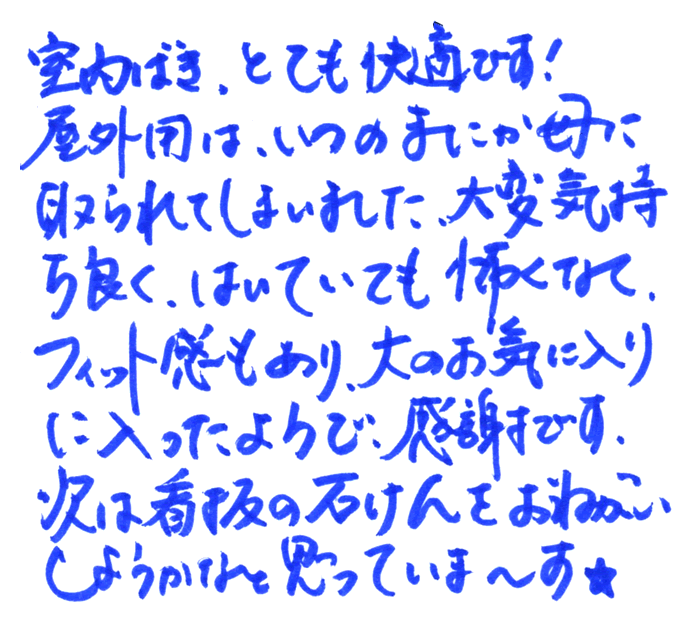 室内ばき、とても快適です!
屋外用は、いつのまにか母に
取られてしまいました、大変気持
ち良く、はいていても怖くなくて、
フィット感もあり、大のお気に入り
に入ったようで、感謝すです。
次は看板の石けんをおねがい
しようかなぁと思っていま〜す★